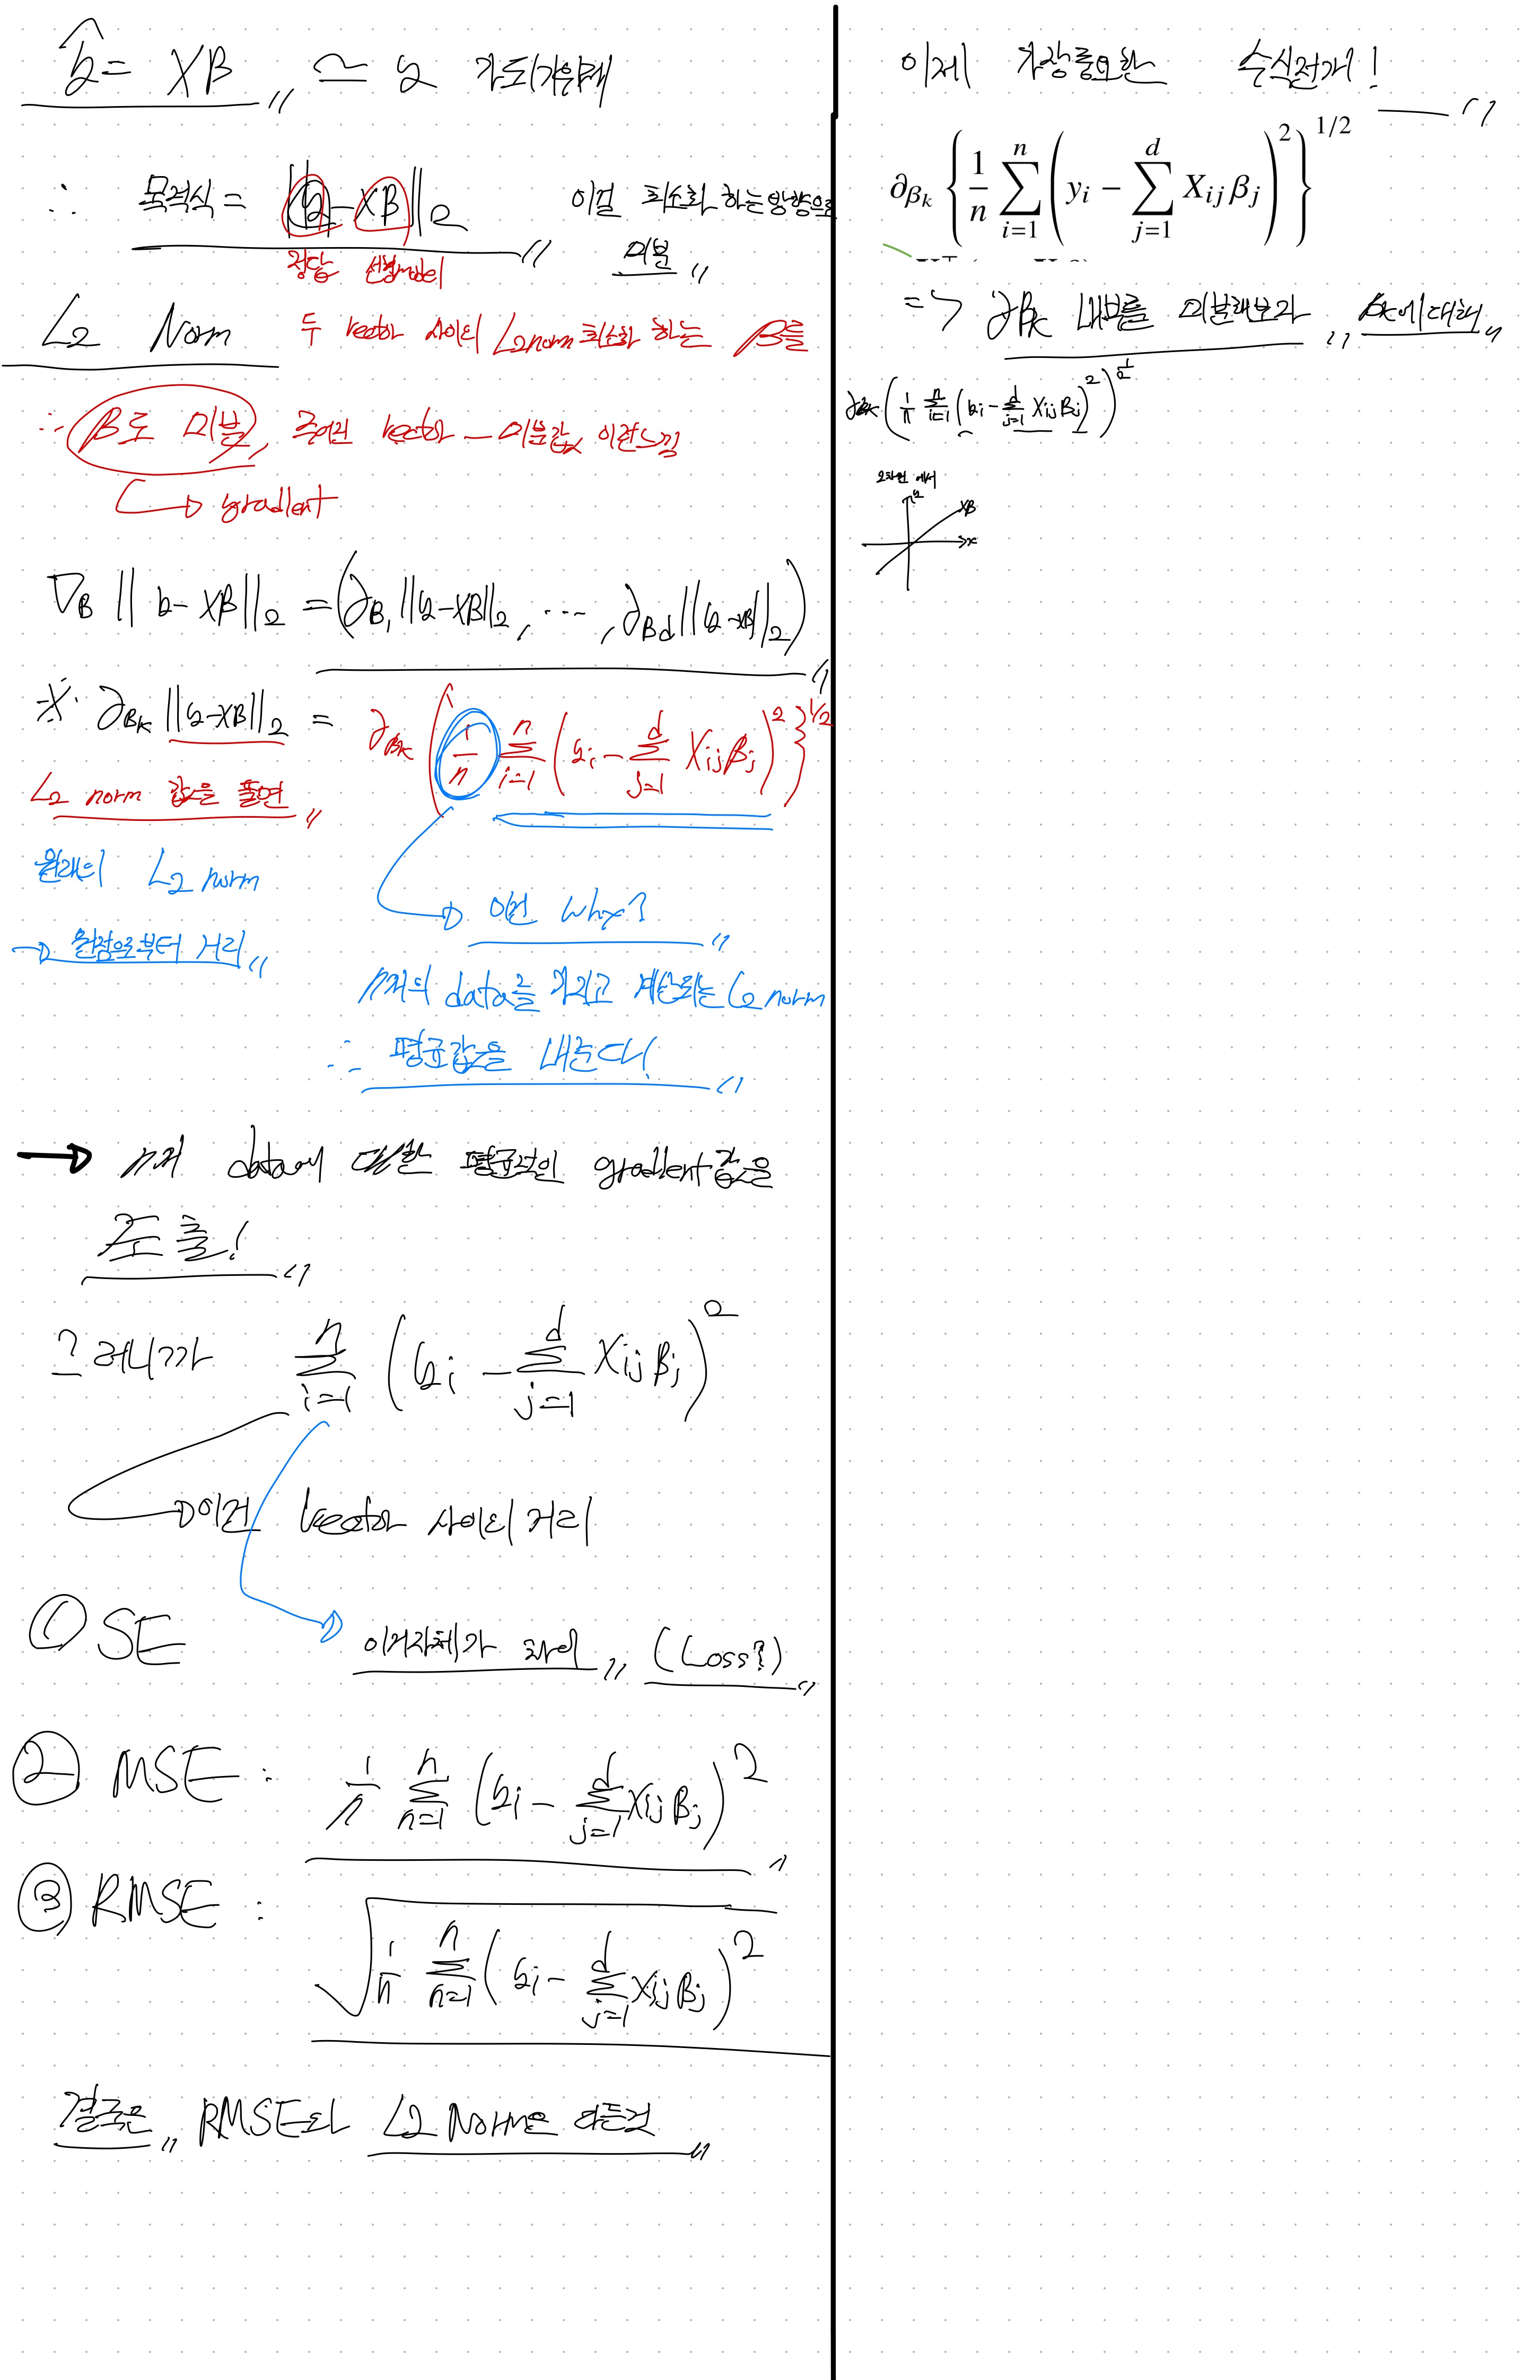 ŷ = Xβ ≃ y 가 되기위해
∴ 목적식 = ||y - Xβ||₂ 이걸 최소화 하는방향으로
정답 선형model 미분
L₂ Norm 두 vector 사이의 L₂norm 최소화 하는 β를
∴ β로 미분, 주어진 vector — 미분값 이런느낌
→ gradient
∇β ||y - Xβ||₂ = (∂β₁ ||y - Xβ||₂, ..., ∂βd ||y - Xβ||₂)
※ ∂βk ||y - Xβ||₂ = ∂βk { 1/n Σ_{i=1}^{n} (yi - Σ_{j=1}^{d} Xij βj)² }^{1/2}
L₂ norm 값을 풀면
원래의 L₂ norm
→ 원점으로부터 거리
→ 이건 Why?
n개의 data를 가지고 계산되는 L₂ norm
∴ 평균값을 내준다!
→ n개 data에 대한 평균적인 gradient 값을
도출!
그러니까 Σ_{i=1}^{n} (yi - Σ_{j=1}^{d} Xij βj)²
→ 이건 Vector 사이의 거리
① SE → 이거자체가 차이 (Loss?)
② MSE : 1/n Σ_{n=1}^{n} (yi - Σ_{j=1}^{d} Xij βj)²
③ RMSE : √(1/n Σ_{n=1}^{n} (yi - Σ_{j=1}^{d} Xij βj)²)
결국은 RMSE와 L2 Norm은 다른것
이제 가장중요한 수식전개!
∂βk { 1/n Σ_{i=1}^{n} (yi - Σ_{j=1}^{d} Xij βj)² }^{1/2}
=> ∂βk 내부를 미분해보자 βk에대해
∂βk (1/n Σ_{i=1}^{n} (yi - Σ_{j=1}^{d} Xij βj)²)^{1/2}
에서
y
Xβ
x